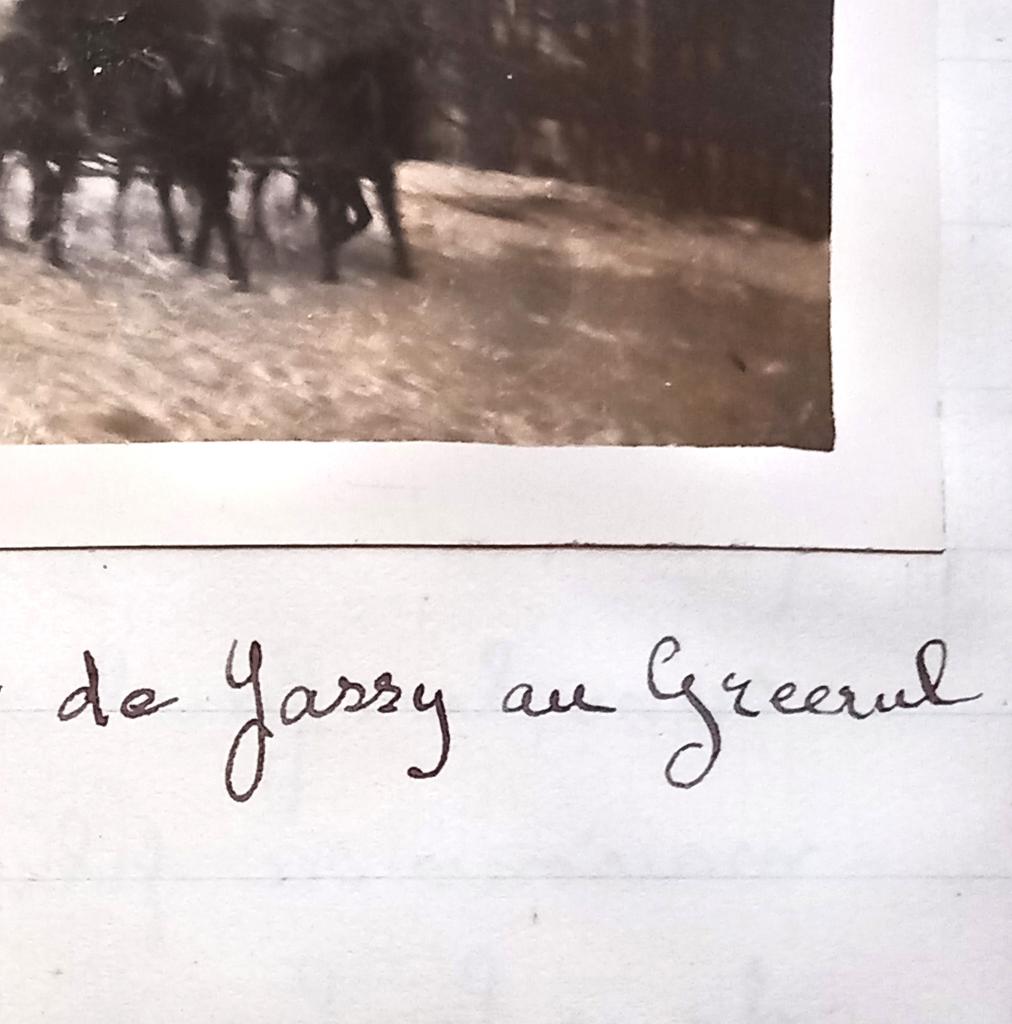 de Yassy au Greerul